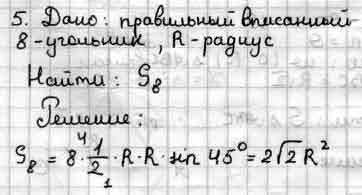 5. Дано: правильный вписанный
8-угольник, R-радиус
Найти: S₈
Решение:
S₈ = 8⁴ · 1/2₁ · R · R · sin 45° = 2√2 R²